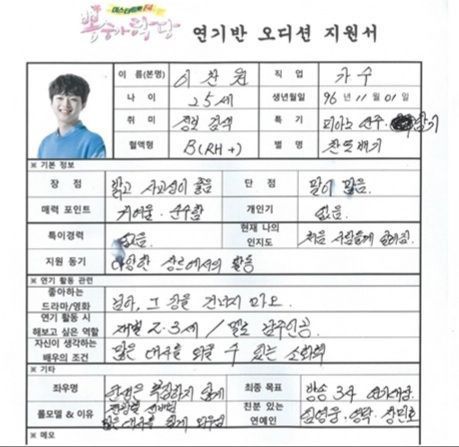 뽕숭아학당 연기반 오디션 지원서
이 름(본명) 이찬원 직 업 가수
나 이 25세 생년월일 96년 11월 01일
취 미 정보 검색 특 기 피아노 연주,
혈액형 B(RH+) 별 명 찬또배기
※ 기본 정보
장 점 밝고 사교성이 좋음 단 점 말이 많음.
매력 포인트 귀여움, 순수함 개인기 없음.
특이경력 없음. 현재 나의
인지도
지원 동기 다양한 장르에서의 활동
※ 연기 활동 관련
좋아하는
드라마/영화 님아, 그 강을 건너지 마오.
연기 활동 시
해보고 싶은 역할 재벌 2·3세 / 멜로 남주인공
자신이 생각하는
배우의 조건 많은 대사를 외울 수 있는 소화력
※ 기타
좌우명 복잡하지 않게 최종 목표 방송 3사 연기대상
롤모델 & 이유 친분 있는
연예인 임영웅, 영탁, 장민호
※ 메모